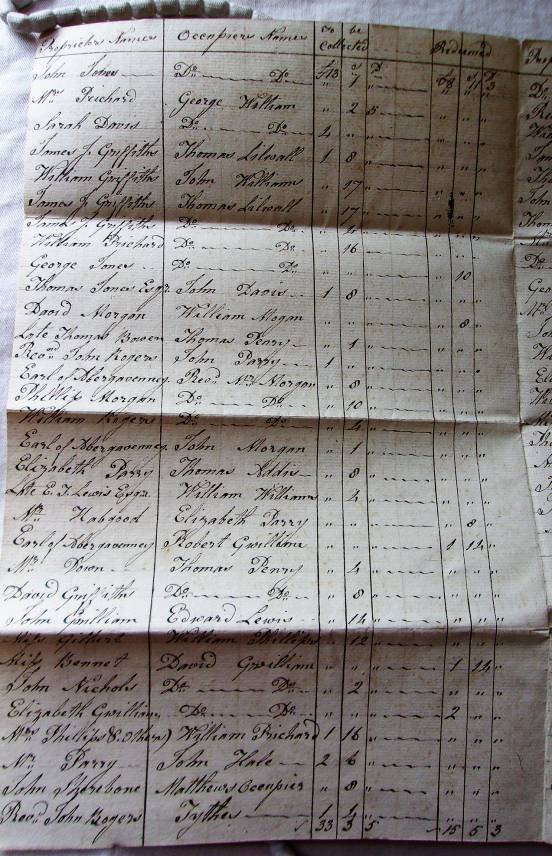 Proprietors Names Occupiers Names To be Collected Redeemed Prop
John Jones Do Do £13 1 " £8 11 3
Mrs Prichard George William " 2 5 " " "
Sarah Davis Do Do 4 " " " " "
James J Griffiths Thomas Lilwall 1 8 " " " "
William Griffiths John Williams " 17 " " " "
James J Griffiths Thomas Lilwall " 17 " " " "
James J Griffiths Do Do " 4 " " " "
William Prichard Do Do " 16 " " " "
George Jones Do Do " " " " 10 "
Thomas Jones Esqr John Davis 1 8 " " " "
David Morgan William Mogan " " " " 8 "
Late Thomas Bowen Thomas Penry " 1 " " " "
Revd John Rogers John Parry 1 " " " " "
Earl of Abergavenney Revd Mr Morgan " 8 " " " "
Phillip Morgan Do Do " 10 " " " "
William Rogers Do Do " 4 " " " "
Earl of Abergavenney John Morgan " 1 " " " "
Elizabeth Parry Thomas Addis " 8 " " " "
Late E. J. Lewis Esqr William Williams " 4 " " " "
Mr Habgood Elizabeth Parry " " " " 8 "
Earl of Abergavenney Robert Gwilliam " " " 1 14 "
Mr Thomas Penry " 4 " " " "
David Griffiths Do Do " 8 " " " "
John Gwilliam Edward Lewis " 14 " " " "
William Phillips " 12 " " " "
Miss Bennet David Gwilliam " " " 1 14 "
John Nichols Do Do " 2 " " " "
Elizabeth Gwilliam Do Do " " " 2 " "
Mrs Phillips (& Others) William Prichard 1 16 " " " "
Mr Parry John Hale 2 6 " " " "
John Matthews Occupier " 8 " " " "
Revd John Rogers Tythes 4 4 " " " "
33 3 5 15 5 3